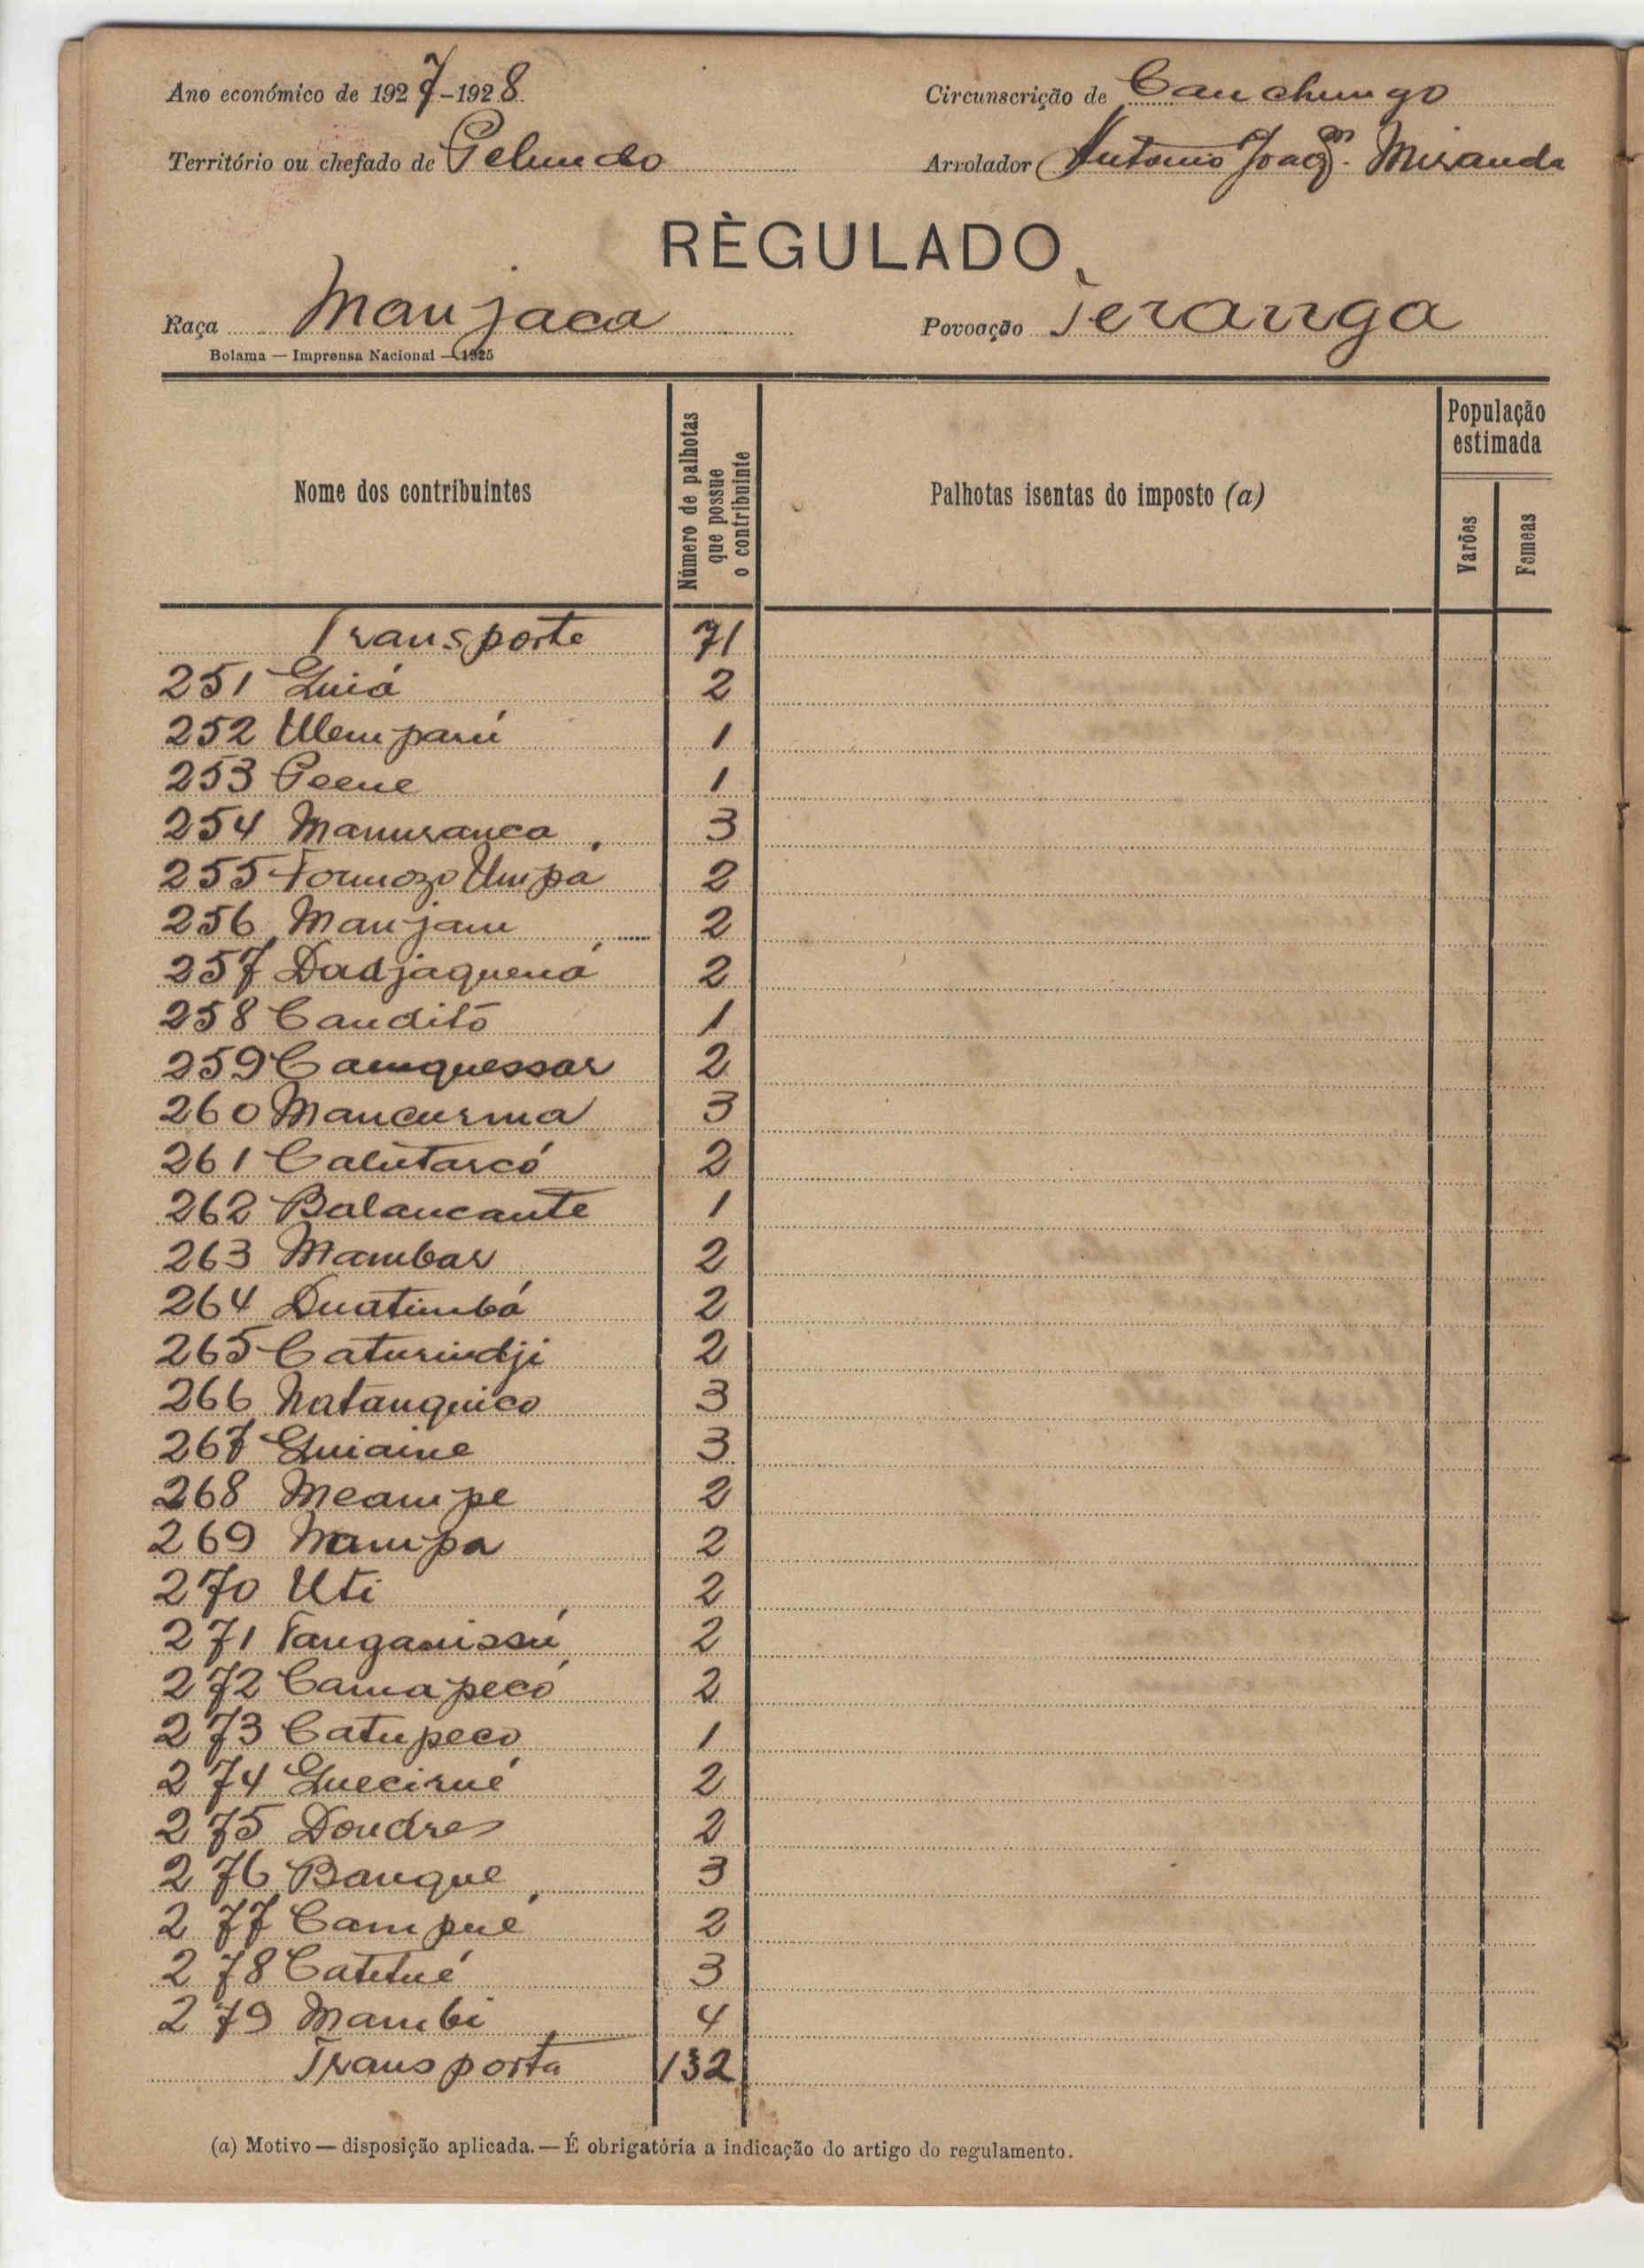 Ano económico de 1927-1928
Circunscrição de Canchungo
Território ou chefado de Pelundo
Arrolador Antonio Joaqm. Miranda
RÈGULADO
Raça Manjaca
Povoação Teranga
Bolama — Imprensa Nacional — 1925
Nome dos contribuintes
Número de palhotas que possue o contribuinte
Palhotas isentas do imposto (a)
População estimada
Varões
Femeas
Transporte 71
251 Guiá 2
252 Ulempami 1
253 Peene 1
254 Manuranca 3
255 Formozo Umpá 2
256 Manjam 2
257 Dadjaquená 2
258 Canditó 1
259 Camquessar 2
260 Mancurma 3
261 Calutarcó 2
262 Balancante 1
263 Mambar 2
264 Duatimbá 2
265 Caturindji 2
266 Natanquico 3
267 Guiaine 3
268 Meampe 2
269 Mampa 2
270 Uti 2
271 Tanganissú 2
272 Camapecó 2
273 Catupeco 1
274 Guecirué 2
275 Doudres 2
276 Banque 3
277 Campué 2
278 Catitué 3
279 Mambi 4
Transporta 132
(a) Motivo — disposição aplicada. — É obrigatória a indicação do artigo do regulamento.